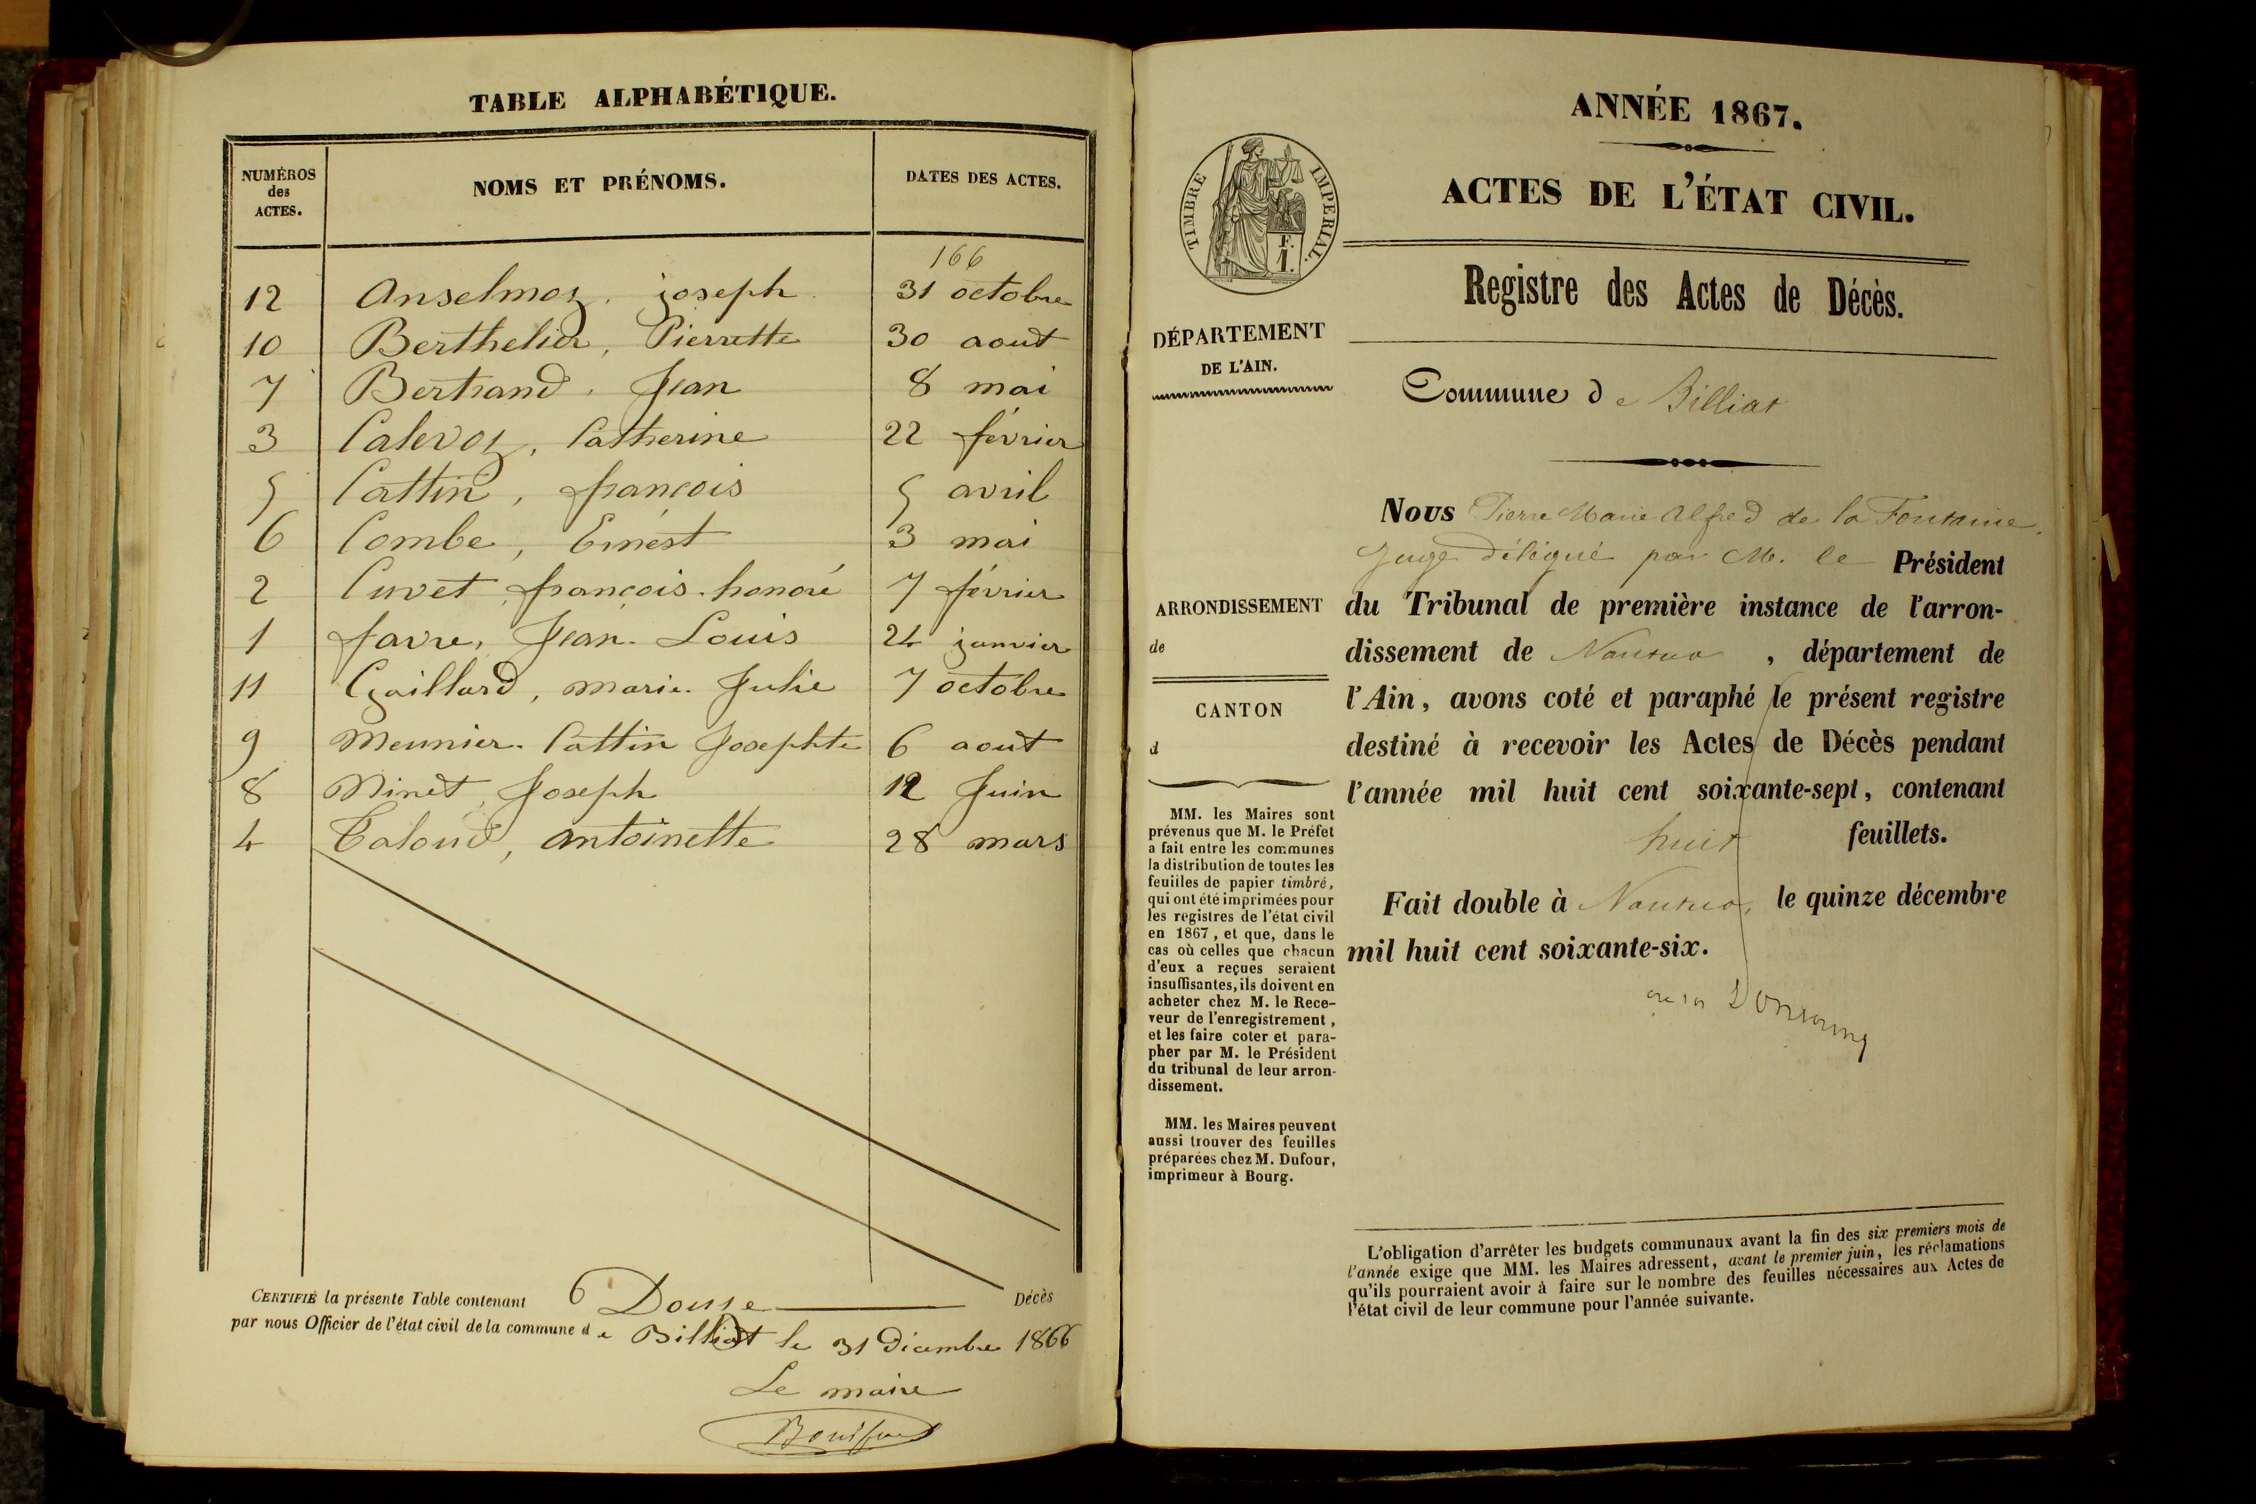 TABLE ALPHABÉTIQUE.
NUMÉROS des ACTES. NOMS ET PRÉNOMS. DATES DES ACTES.
166
12 Anselmoz, joseph 31 octobre
10 Berthelier, Pierrette 30 aout
7 Bertrand, Jean 8 mai
3 Calevoz, Catherine 22 février
5 Cattin, françois 5 avril
6 Combe, Ernest 3 mai
2 Cuvet, françois honoré 7 février
1 favre, Jean Louis 24 janvier
11 Gaillard, marie Julie 7 octobre
9 Meunier Cattin Josephte 6 aout
8 Ninet, Joseph 12 Juin
4 Taloud, antoinette 28 mars
CERTIFIÉ la présente Table contenant Douze Décès
par nous Officier de l'état civil de la commune de Billiat le 31 Décembre 1866
Le maire
ANNÉE 1867.
ACTES DE L'ÉTAT CIVIL.
TIMBRE IMPERIAL.
F.
1.
Registre des Actes de Décès.
DÉPARTEMENT
DE L'AIN.
Commune de Billiat
ARRONDISSEMENT
de
CANTON
d
MM. les Maires sont
prévenus que M. le Préfet
a fait entre les communes
la distribution de toutes les
feuilles de papier timbré,
qui ont été imprimées pour
les registres de l'état civil
en 1867, et que, dans le
cas où celles que chacun
d'eux a reçues seraient
insuffisantes, ils doivent en
acheter chez M. le Rece-
veur de l'enregistrement,
et les faire coter et para-
pher par M. le Président
du tribunal de leur arron-
dissement.
MM. les Maires peuvent
aussi trouver des feuilles
préparées chez M. Dufour,
imprimeur à Bourg.
Nous Pierre Marie Alfred de la Fontaine,
Juge délégué par M. le Président
du Tribunal de première instance de l'arron-
dissement de Nantua, département de
l'Ain, avons coté et paraphé le présent registre
destiné à recevoir les Actes de Décès pendant
l'année mil huit cent soixante-sept, contenant
huit feuillets.
Fait double à Nantua, le quinze décembre
mil huit cent soixante-six.
L'obligation d'arrêter les budgets communaux avant la fin des six premiers mois de
l'année exige que MM. les Maires adressent, avant le premier juin, les réclamations
qu'ils pourraient avoir à faire sur le nombre des feuilles nécessaires aux Actes de
l'état civil de leur commune pour l'année suivante.